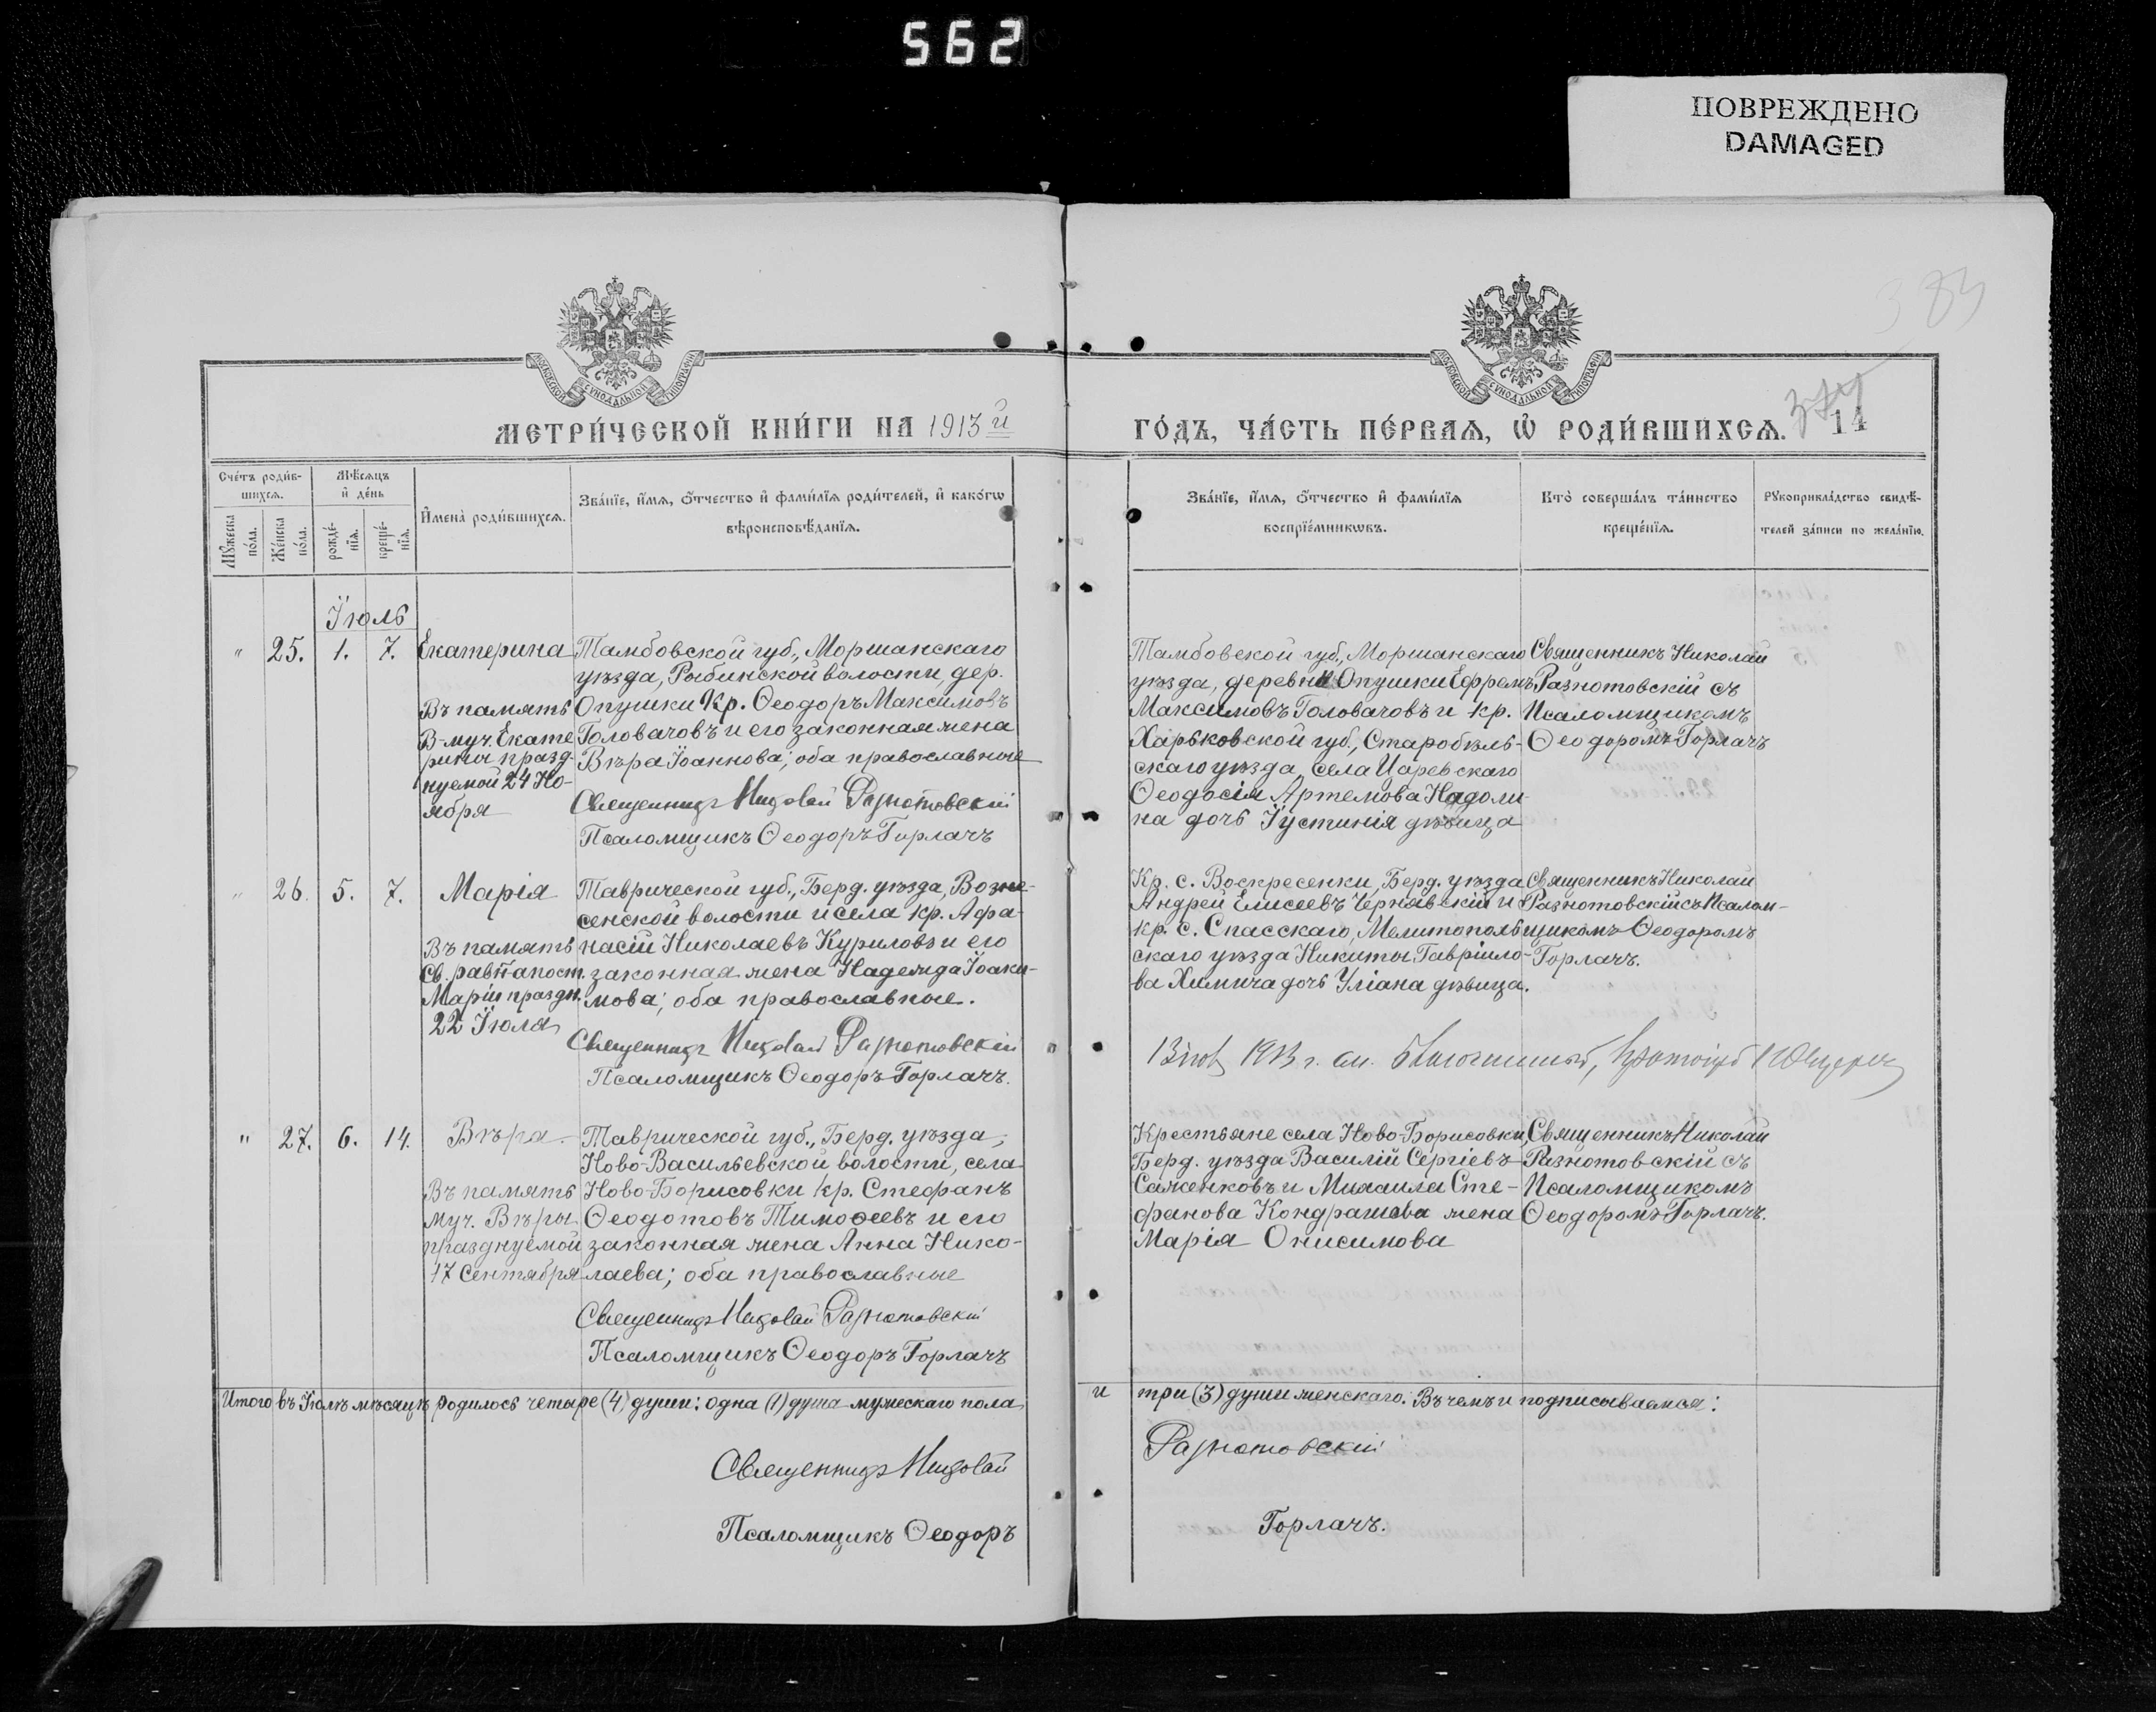 562
ПОВРЕЖДЕНО
DAMAGED
383
374
14
МОСКОВСКОЙ СѴНОДАЛЬНОЙ ТИПОГРАФІИ
МОСКОВСКОЙ СѴНОДАЛЬНОЙ ТИПОГРАФІИ
МЕТРИ́ЧЕСКОЙ КНИ́ГИ НА 1913й
ГО́ДЪ, ЧА́СТЬ ПЕ́РВАЯ, Ѡ҆ РОДИ́ВШИХСЯ.
Сче́тъ роди́в-
шихся.
Мѣ́сяцъ
и҆ де́нь
И҆мена̀ роди́вшихся.
Зва́нїе, и҆́мя, ѻ҆́тчество и҆ фами́лїя роди́телей, и҆ како́гѡ
вѣроисповѣ́данїя.
Мꙋ́жеска
по́ла.
Же́нска
по́ла.
рожде́-
нїя.
креще́-
нїя.
Зва́нїе, и҆́мя, ѻ҆́тчество и҆ фами́лїя
воспрїе́мникѡвъ.
Кто̀ соверша́лъ та́инство
креще́нїя.
Рꙋкоприкла́дство свидѣ́-
телей за́писи по жела́нїю.
Іюль
" 25. 1. 7. Екатерина
Въ память
В-муч. Екате
рины празд-
нуемой 24 Но-
ября
Тамбовской губ., Моршанскаго
уѣзда, Рыбинской волости, дер.
Опушки Кр. Ѳеодоръ Максимовъ
Головачовъ и его законная жена
Вѣра Іоаннова; оба православные
Священникъ Николай Разнотовскій
Псаломщикъ Ѳеодоръ Горлачъ
Тамбовской губ., Моршанскаго
уѣзда, деревни Опушки Ефремъ
Максимовъ Головачовъ и кр.
Харьковской губ., Старобѣль-
скаго уѣзда, села Царевскаго
Ѳеодосія Артемова Надоли-
на дочь Іустинія дѣвица
Священникъ Николай
Разнотовскій съ
Псаломщикомъ
Ѳеодоромъ Горлачъ
" 26. 5. 7. Марія
Въ память
Св. равн̃апост.
Маріи праздн.
22 Іюля
Таврической губ., Берд. уѣзда, Возне-
сенской волости и села кр. Афа-
насій Николаевъ Куриловъ и его
законная жена Надежда Іоаки-
мова; оба православные.
Священникъ Николай Разнотовскій
Псаломщикъ Ѳеодоръ Горлачъ.
Кр. с. Воскресенки, Берд. уѣзда
Андрей Елисеевъ Чернявскій и
кр. с. Спасскаго, Мелитополь
скаго уѣзда Никиты Гавріило-
ва Химича дочь Уліана дѣвица.
Священникъ Николай
Разнотовскій съ Псалом-
щикомъ Ѳеодоромъ
Горлачъ.
1913 г.
" 27. 6. 14. Вѣра.
Въ память
муч. Вѣры
празднуемой
17 Сентября
Таврической губ., Берд. уѣзда,
Ново-Васильевской волости, села
Ново-Борисовки кр. Стефанъ
Ѳеодотовъ Тимоѳеевъ и его
законная жена Анна Нико-
лаева; оба православные
Священникъ Николай Разнотовскій
Псаломщикъ Ѳеодоръ Горлачъ
Крестьяне села Ново-Борисовки,
Берд. уѣзда Василій Сергіевъ
Саженковъ и Михаила Сте-
фанова Кондрашова жена
Марія Онисимова
Священникъ Николай
Разнотовскій съ
Псаломщикомъ
Ѳеодоромъ Горлачъ.
Итого въ Іюлѣ мѣсяцѣ родилось четыре (4) души: одна (1) душа мужескаго пола
и три (3) души женскаго. Въ чемъ и подписываемся:
Священникъ Николай
Разнотовскій
Псаломщикъ Ѳеодоръ
Горлачъ.